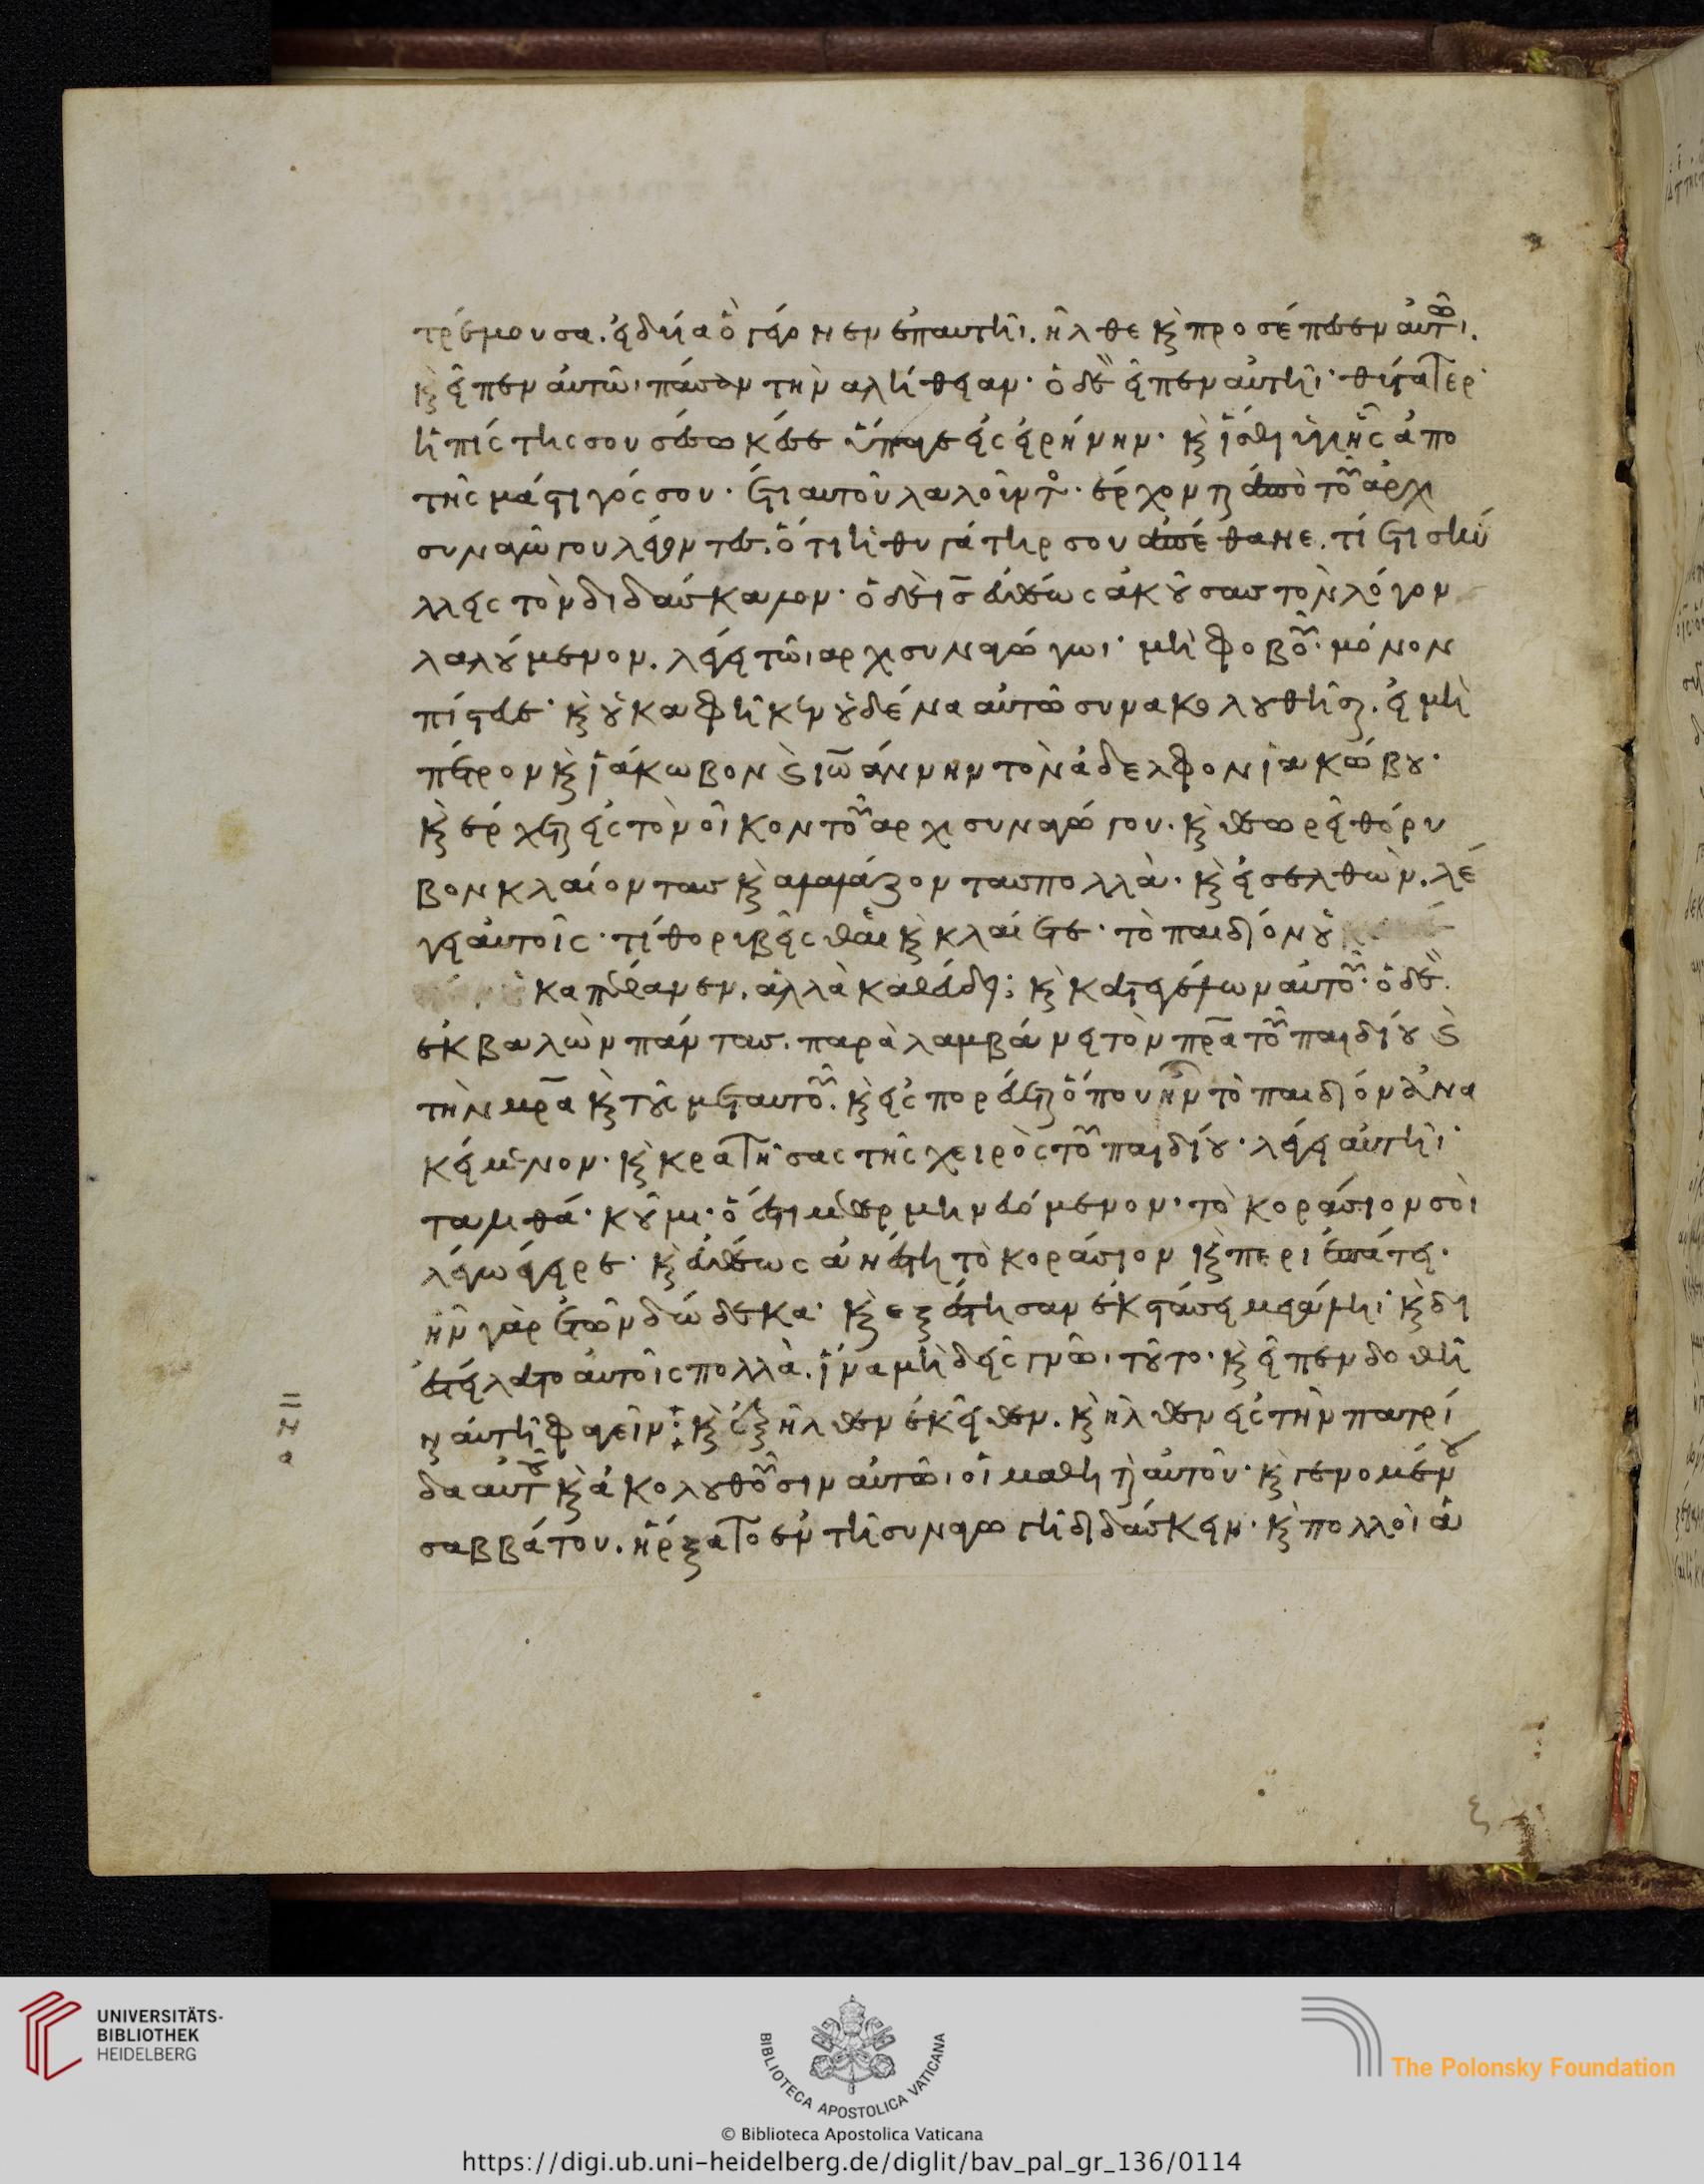 τρέμουσα. εἰδυῖα ὃ γέγονεν ἐπαυτῆι. ἦλθε κὶ προσέπεσεν αὐτῶι.
κὶ εἶπεν αὐτῶι πᾶσαν τὴν αλήθειαν· ὁ δὲ εἶπεν αὐτῆι· θύγατερ·
ἡ πίστις σου σέσωκέ σε ὕπαγε εἰς εἰρήνην· κὶ ἴσθι ὑγιὴς ἀπο
τῆς μάστιγός σου· ἔτι αυτοῦ λαλοῦντο· ἔρχονται ἀπὸ τοῦ ἀρχι
συναγώγου λέγοντες. ὅτι ἡ θυγάτηρ σου ἀπέθανε. τί ἔτι σκύ
λλεις τὸν διδάσκαλον· ὁ δὲ ις εὐθέως ἀκούσας τὸν λόγον
λαλούμενον. λέγει τῶι αρχισυναγώγωι· μὴ φοβοῦ· μόνον
πίστευε· κὶ οὐκ αφῆκεν οὐδένα αὐτῶ συνακολουθῆσαι. εἰ μὴ
πέτρον κὶ ἰάκωβον κὶ ιωάννην τὸν ἀδελφον ἰακώβου·
κὶ ἔρχεται εἰς τὸν οἶκον τοῦ αρχισυναγώγου. κὶ θεωρεῖ θόρυ
βον κλαίοντας κὶ αλαλάζοντας πολλὰ· κὶ εἰσελθὼν. λέ
γει αὐτοῖς· τί θορυβεῖσθαι κὶ κλαίετε· τὸ παιδίον οὐ
κ απέθανεν. ἀλλὰ καθεύδει; κὶ κατεγέλων αὐτοῦ· ὁ δὲ.
ἐκβαλὼν πάντας. παραλαμβάνει τὸν πρα τοῦ παιδίου κὶ
τὴν μρα κὶ τοὺς μεταυτοῦ. κὶ εἰσπορεύεται ὅπου ἦν τὸ παιδίον ἀνα
κείμενον. κὶ κρατήσας τῆς χειρὸς τοῦ παιδίου· λέγει αὐτῆι·
ταλιθά· κοῦμι· ὅ ἐστι μεθερμηνευόμενον· τὸ κοράσιον σοὶ
λέγω ἔγειρε· κὶ εὐθέως ἀνέστη τὸ κοράσιον κὶ περιεπάτει·
ἦν γὰρ ἐτῶν δώδεκα· κὶ εξέστησαν ἐκστάσει μεγάλη· κὶ δι
εστείλατο αὐτοῖς πολλὰ. ἵνα μὴδεὶς γνῶι τοῦτο. κὶ εἶπεν δοθῆ
ναι αὐτῆ φαγεῖν: κὶ ἐξῆλθεν ἐκεῖθεν. κὶ ἦλθεν εἰς τὴν πατρί
δα αὐτοῦ κὶ ἀκολουθοῦσιν αὐτῶι οἱ μαθηταὶ αὐτοῦ· κὶ γενομένου
σαββάτου. ἤρξατο ἐν τῆ συναγωγῆ διδάσκειν· κὶ πολλοὶ ἀ
UNIVERSITÄTS-
BIBLIOTHEK
HEIDELBERG
BIBLIOTECA APOSTOLICA VATICANA
The Polonsky Foundation
© Biblioteca Apostolica Vaticana
https://digi.ub.uni-heidelberg.de/diglit/bav_pal_gr_136/0114